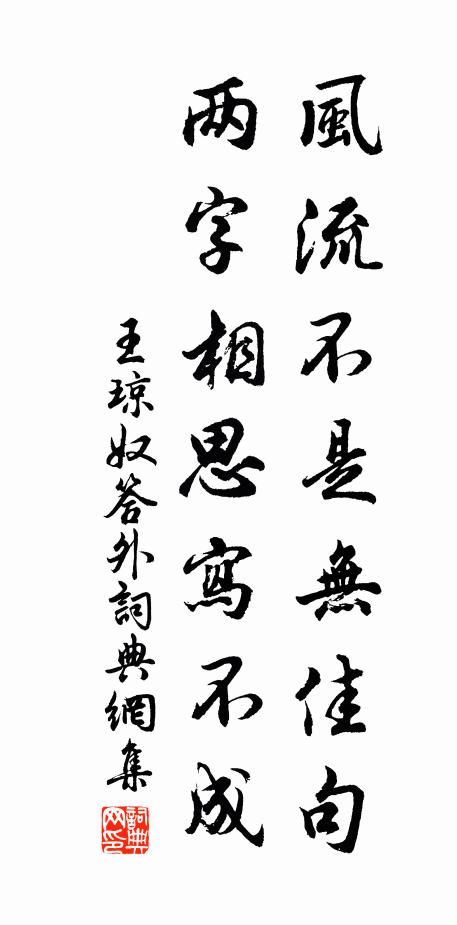 風流不是無佳句
两字相思寫不成
王琼奴答外詞典網集
詞典网印